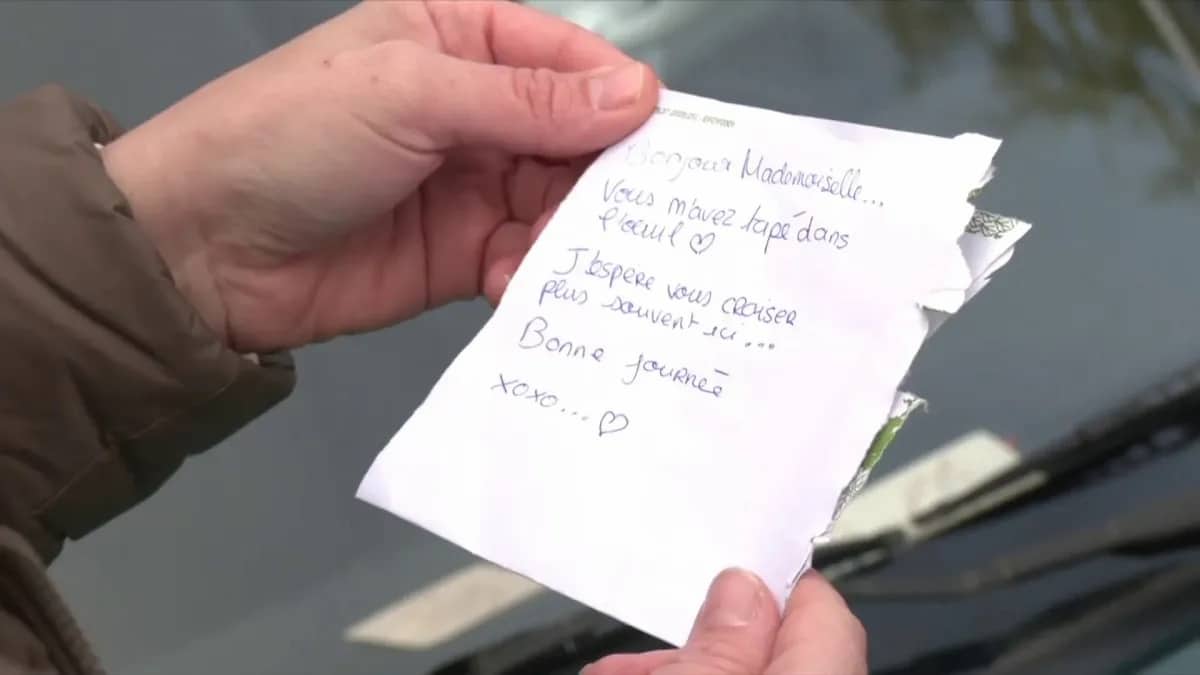 Bonjour Mademoiselle...
Vous m'avez tapé dans
l'oeuil ♡
J'espere vous croiser
plus souvent ici...
Bonne journée
xoxo... ♡